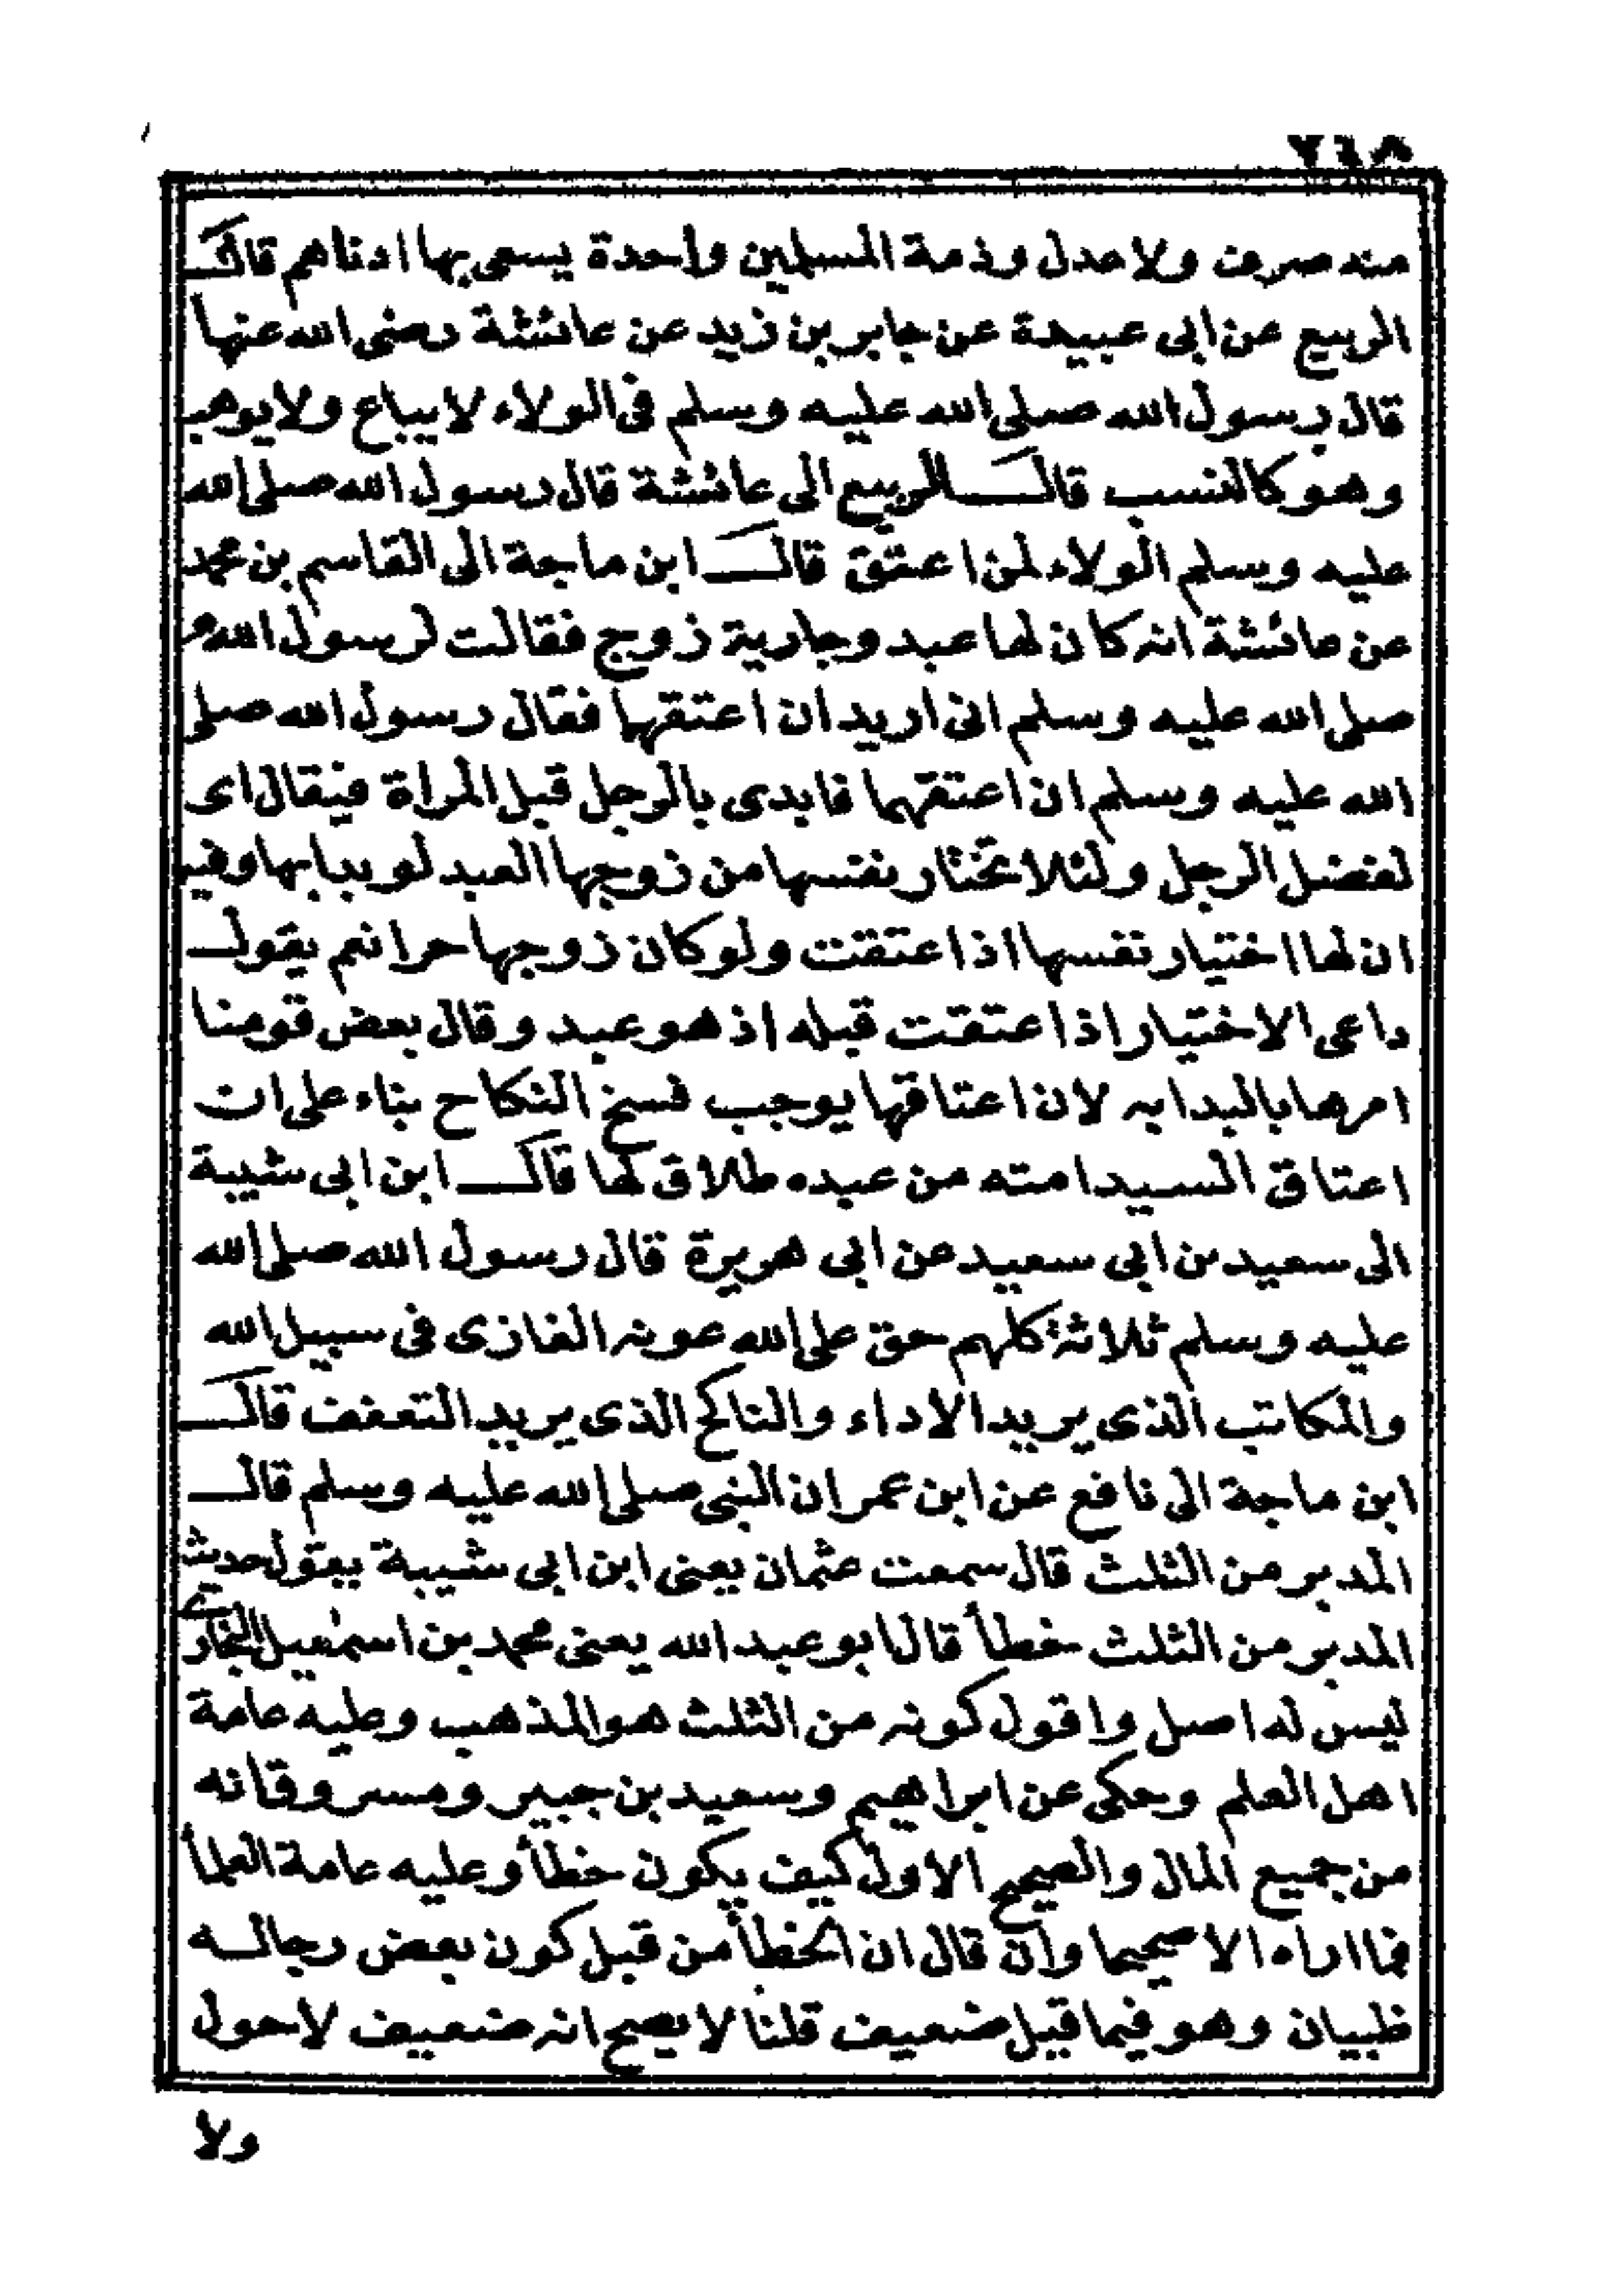 ٢٦٨
منه صرف ولا عدل وذمة المسلمين واحدة يسعى بها ادناهم قال
الربيع عن ابى عبيدة عن جابر بن زيد عن عائشة رضى الله عنها
قال رسول الله صلى الله عليه وسلم فى الولاء لا يباع ولا يوهب
وهو كالنسب قال الربيع الى عائشة قال رسول الله صلى الله
عليه وسلم الولاء لمن اعتق قال ابن ماجة الى القاسم بن محمد
عن عائشة انه كان لها عبد وجارية زوج فقالت لرسول الله
صلى الله عليه وسلم انى اريد ان اعتقها فقال رسول الله صلى
الله عليه وسلم ان اعتقهما فابدى بالرجل قبل المراة فيقال اى
لفضل الرجل ولئلا تختار نفسها من زوجها العبد لو بدا بها وفيه
ان لها اختيار نفسها اذا عتقت ولو كان زوجها حرا نعم يقول
داعى الاختيار اذا عتقت قبله اذ هو عبد وقال بعض قومنا
امرها بالبدا به لان اعتاقها يوجب فسخ النكاح بناء على ان
اعتاق السيد امته من عبده طلاق لها قال ابن ابى شيبة
الى سعيد بن ابى سعيد عن ابى هريرة قال رسول الله صلى الله
عليه وسلم ثلاثة كلهم حق على الله عونه الغازى فى سبيل الله
والمكاتب الذى يريد الاداء والناكح الذى يريد التعفف قال
ابن ماجة الى نافع عن ابن عمر ان النبى صلى الله عليه وسلم قال
المدبر من الثلث قال سمعت عثمان يعنى ابن ابى شيبة يقول حديث
المدبر من الثلث خطأ قال ابو عبد الله يعنى محمد بن اسمعيل البخارى
ليس له اصل واقول كونه من الثلث هو المذهب وعليه عامة
اهل العلم وحكى عن ابراهيم وسعيد بن جبير ومسروق انه
من جميع المال والصحيح الاول كيف يكون خطأ وعليه عامة العلمأ
فما اراه الا صحيحا وان قال ان الخطأ من قبل كون بعض رجاله
ظبيان وهو فيما قيل ضعيف قلنا لا يصح انه ضعيف لاحول
ولا